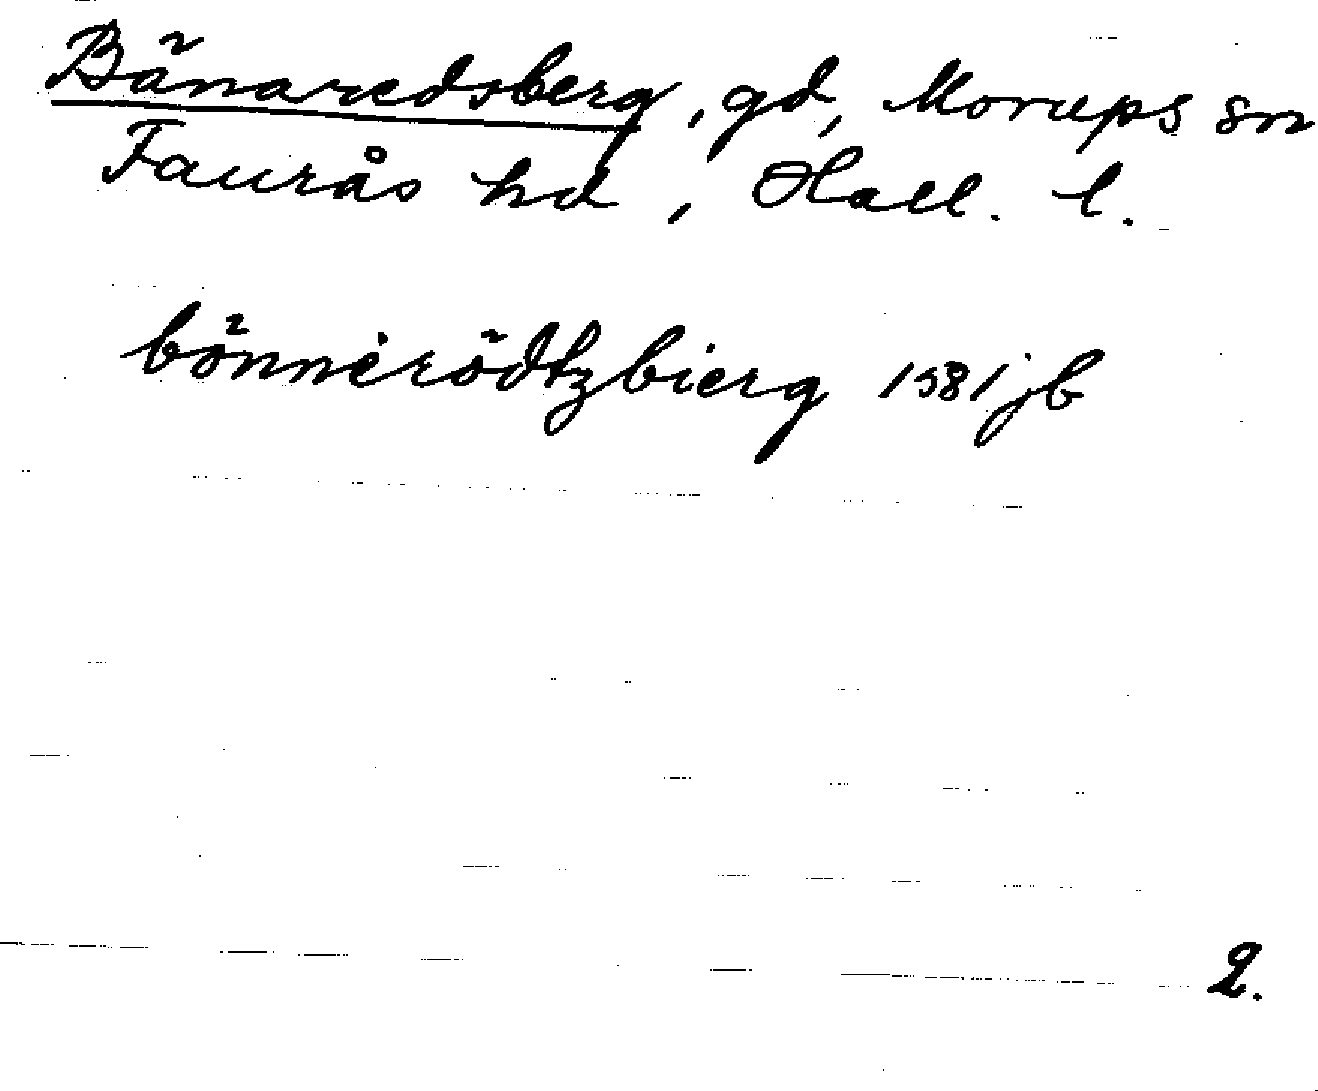 Bänaredsberg, gd, Morups sn
Faurås hd, Hall. l.
bönnerödtzbierg 1581 jb
2.